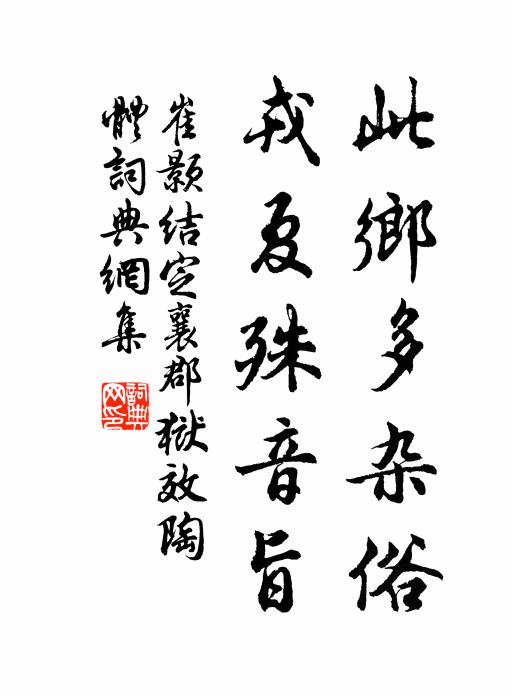 此鄉多杂俗
戎夏殊音旨
崔顥结定襄郡獄效陶
體詞典網集
詞典网印